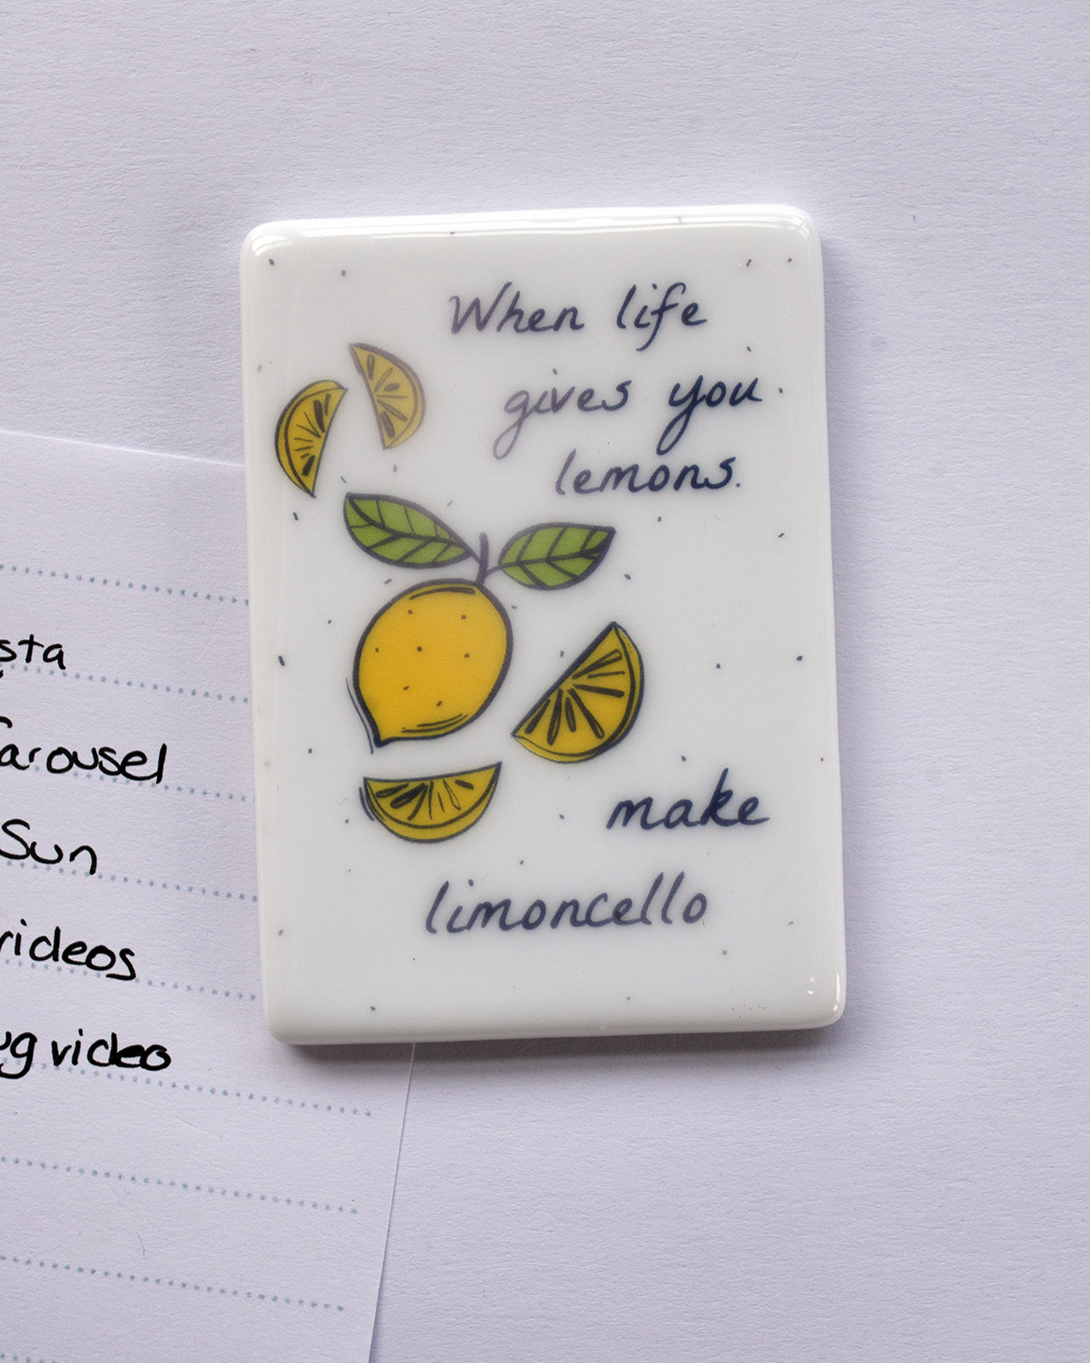 When life
gives you
lemons.
make
limoncello
sta
arousel
Sun
videos
ug video